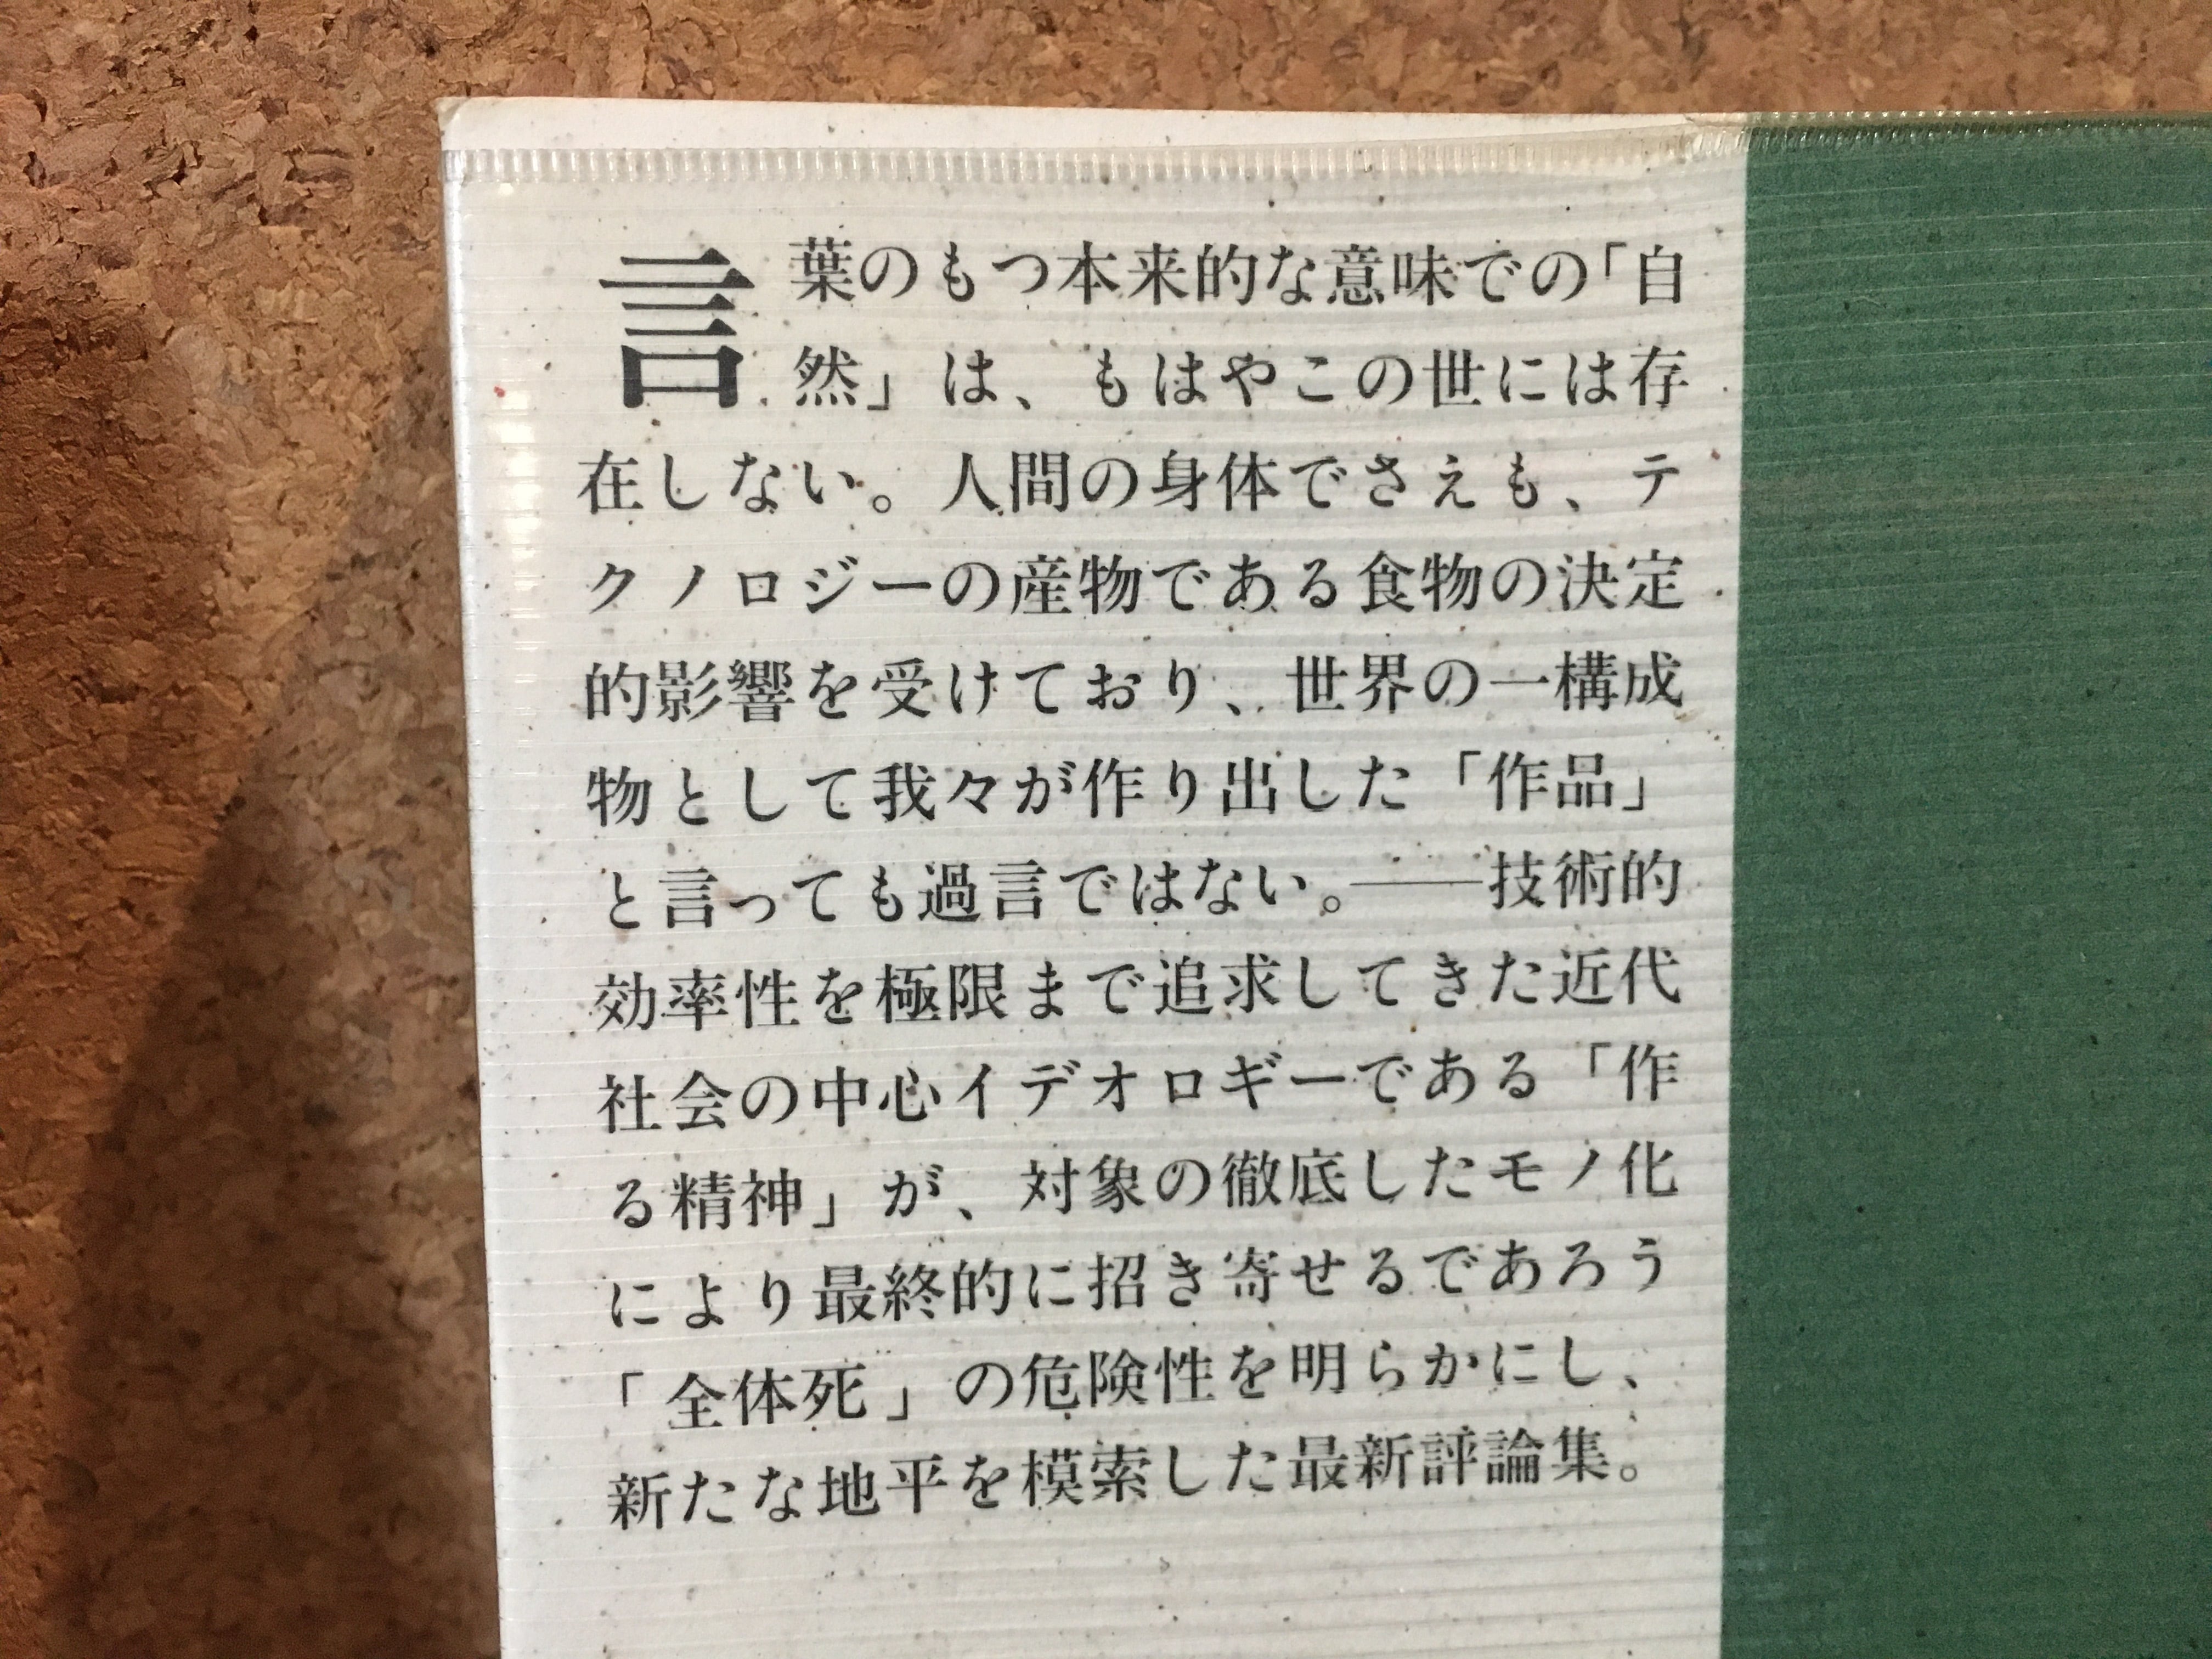 言葉のもつ本来的な意味での「自
然」は、もはやこの世には存
在しない。人間の身体でさえも、テ
クノロジーの産物である食物の決定
的影響を受けており、世界の一構成
物として我々が作り出した「作品」
と言っても過言ではない。――技術的
効率性を極限まで追求してきた近代
社会の中心イデオロギーである「作
る精神」が、対象の徹底したモノ化
により最終的に招き寄せるであろう
「全体死」の危険性を明らかにし、
新たな地平を模索した最新評論集。